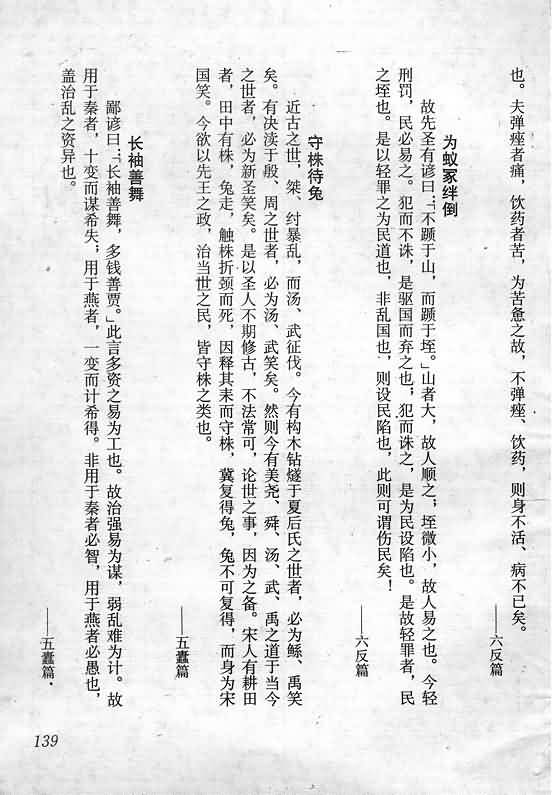 也。夫弹痤者痛，饮药者苦，为苦惫之故，不弹痤、饮药，则身不活、病不已矣。
——六反篇
为蚁冢绊倒
故先圣有谚曰：“不踬于山，而踬于垤。”山者大，故人顺之；垤微小，故人易之也。今轻
刑罚，民必易之。犯而不诛，是驱国而弃之也；犯而诛之，是为民设陷也。是故轻罪者，民
之垤也。是以轻罪之为民道也，非乱国也，则设民陷也，此则可谓伤民矣！
——六反篇
守株待兔
近古之世，桀、纣暴乱，而汤、武征伐。今有构木钻燧于夏后氏之世者，必为鲧、禹笑
矣。有决渎于殷、周之世者，必为汤、武笑矣。然则今有美尧、舜、汤、武、禹之道于当今
之世者，必为新圣笑矣。是以圣人不期修古，不法常可，论世之事，因为之备。宋人有耕田
者，田中有株，兔走，触株折颈而死，因释其耒而守株，冀复得兔，兔不可复得，而身为宋
国笑。今欲以先王之政，治当世之民，皆守株之类也。
——五蠹篇
长袖善舞
鄙谚曰：“长袖善舞，多钱善贾。”此言多资之易为工也。故治强易为谋，弱乱难为计。故
用于秦者，十变而谋希失；用于燕者，一变而计希得。非用于秦者必智，用于燕者必愚也，
盖治乱之资异也。
——五蠹篇
139